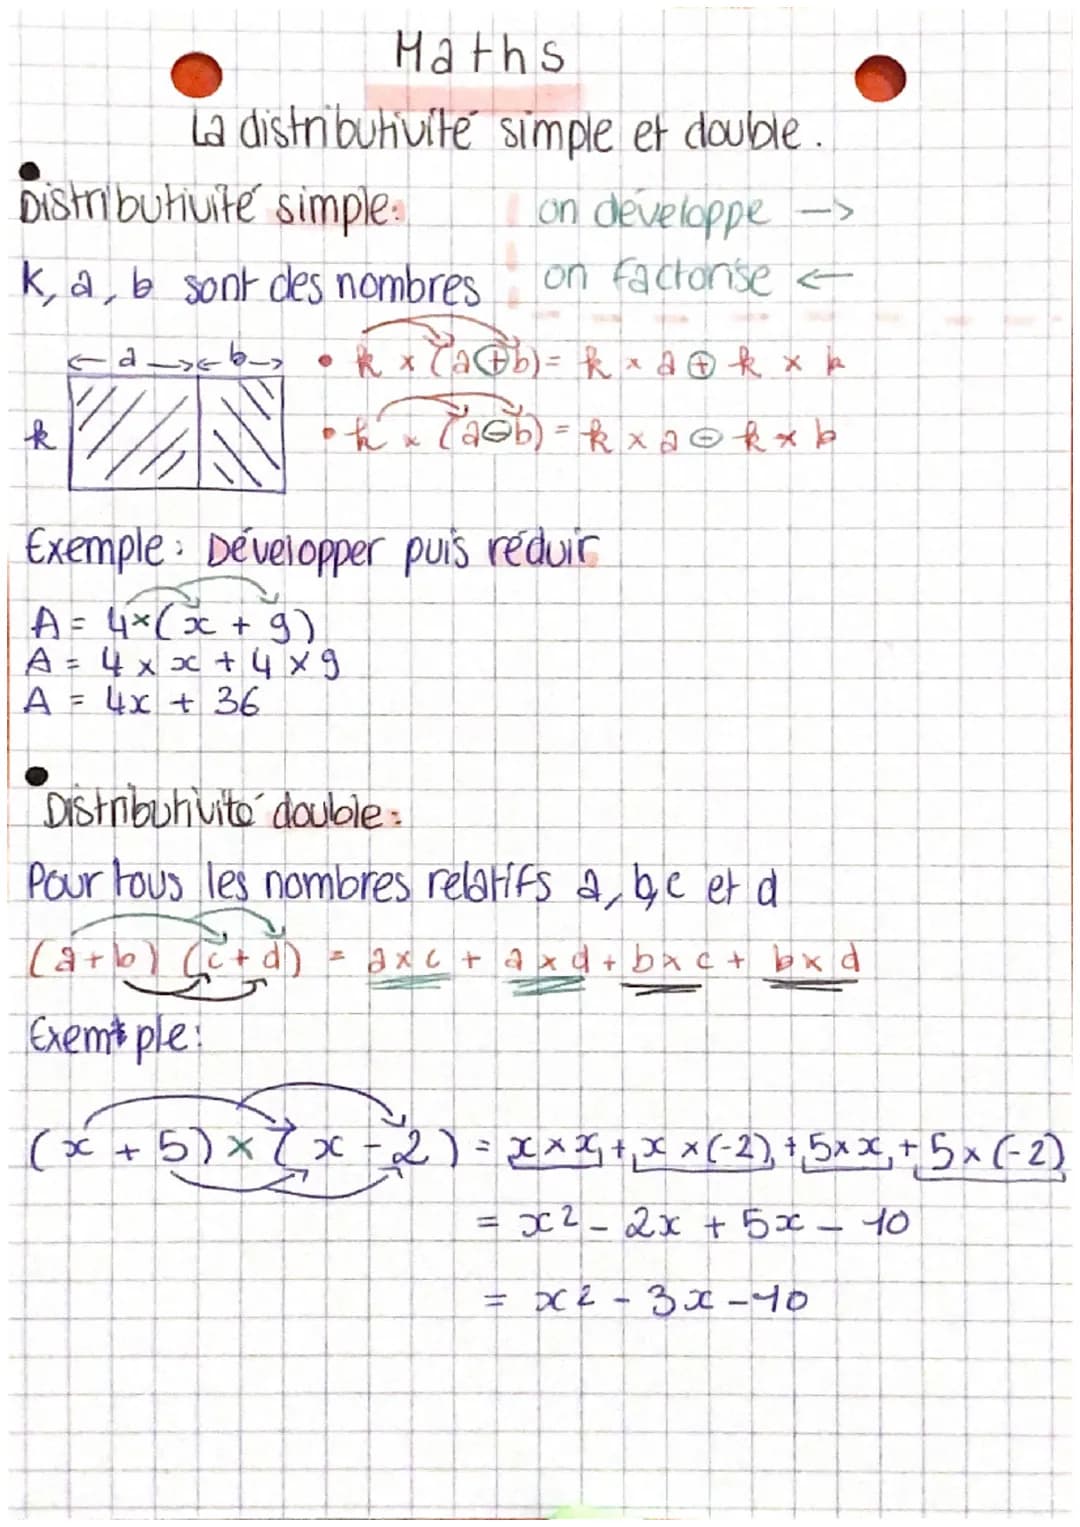 Maths
La distributivité simple et double.
Distributivité simple:
on développe —>
K, a, b sont des nombres
on factorise <—
<— a —><— b —>
k
• k × (a + b) = k × a + k × b
• k × (a - b) = k × a - k × b
Exemple: Développer puis réduir
A = 4×(x + 9)
A = 4 × x + 4 × 9
A = 4x + 36
Distributivité double:
Pour tous les nombres relatifs a, b, c et d
(a+b) (c+d) = a×c + a×d + b×c + b×d
Exemple:
(x + 5) × (x - 2) = x × x + x ×(-2) + 5×x + 5×(-2)
= x² - 2x + 5x - 10
= x² - 3x - 10